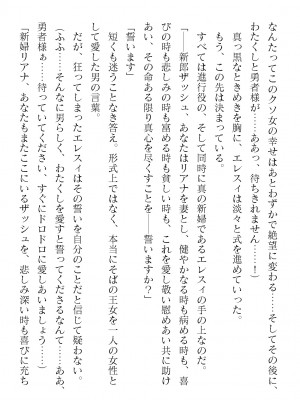 なんたってこのクソ女の幸せはあとわずかで絶望に変わる……そしてその後に、
わたくしと勇者様が……あぁっ、待ちきれません……！
もう、この先は決まっている。
真っ黒なときめきを胸に、エレスィは淡々と式を進めていった。
すべては進行役の、そして同時に真の新婦であるエレスィの手の上なのだ。
「――新郎ザッシュ、あなたはリアナを妻とし、健やかなる時も病める時も、喜
びの時も悲しみの時も富める時も貧しい時も、これを愛し敬い慰めあい共に助け
あい、その命ある限り真心を尽くすことを――誓いますか？」
「誓います」
短くも迷うことなき答え。形式上ではなく、本当にそばの王女を一人の女性と
して愛した男の言葉。
だが、狂ってしまったエレスィはその誓いを自分のことだと信じて疑わない。
（ふふ……そんなに男らしく、わたくしを愛すと誓ってくださるなんて……ああ、
勇者様ぁ……待っていてください、すぐにドロドロに愛しあいましょう……）
「新婦リアナ、あなたもまたここにいるザッシュを、悲しみ深い時も喜びに充ち